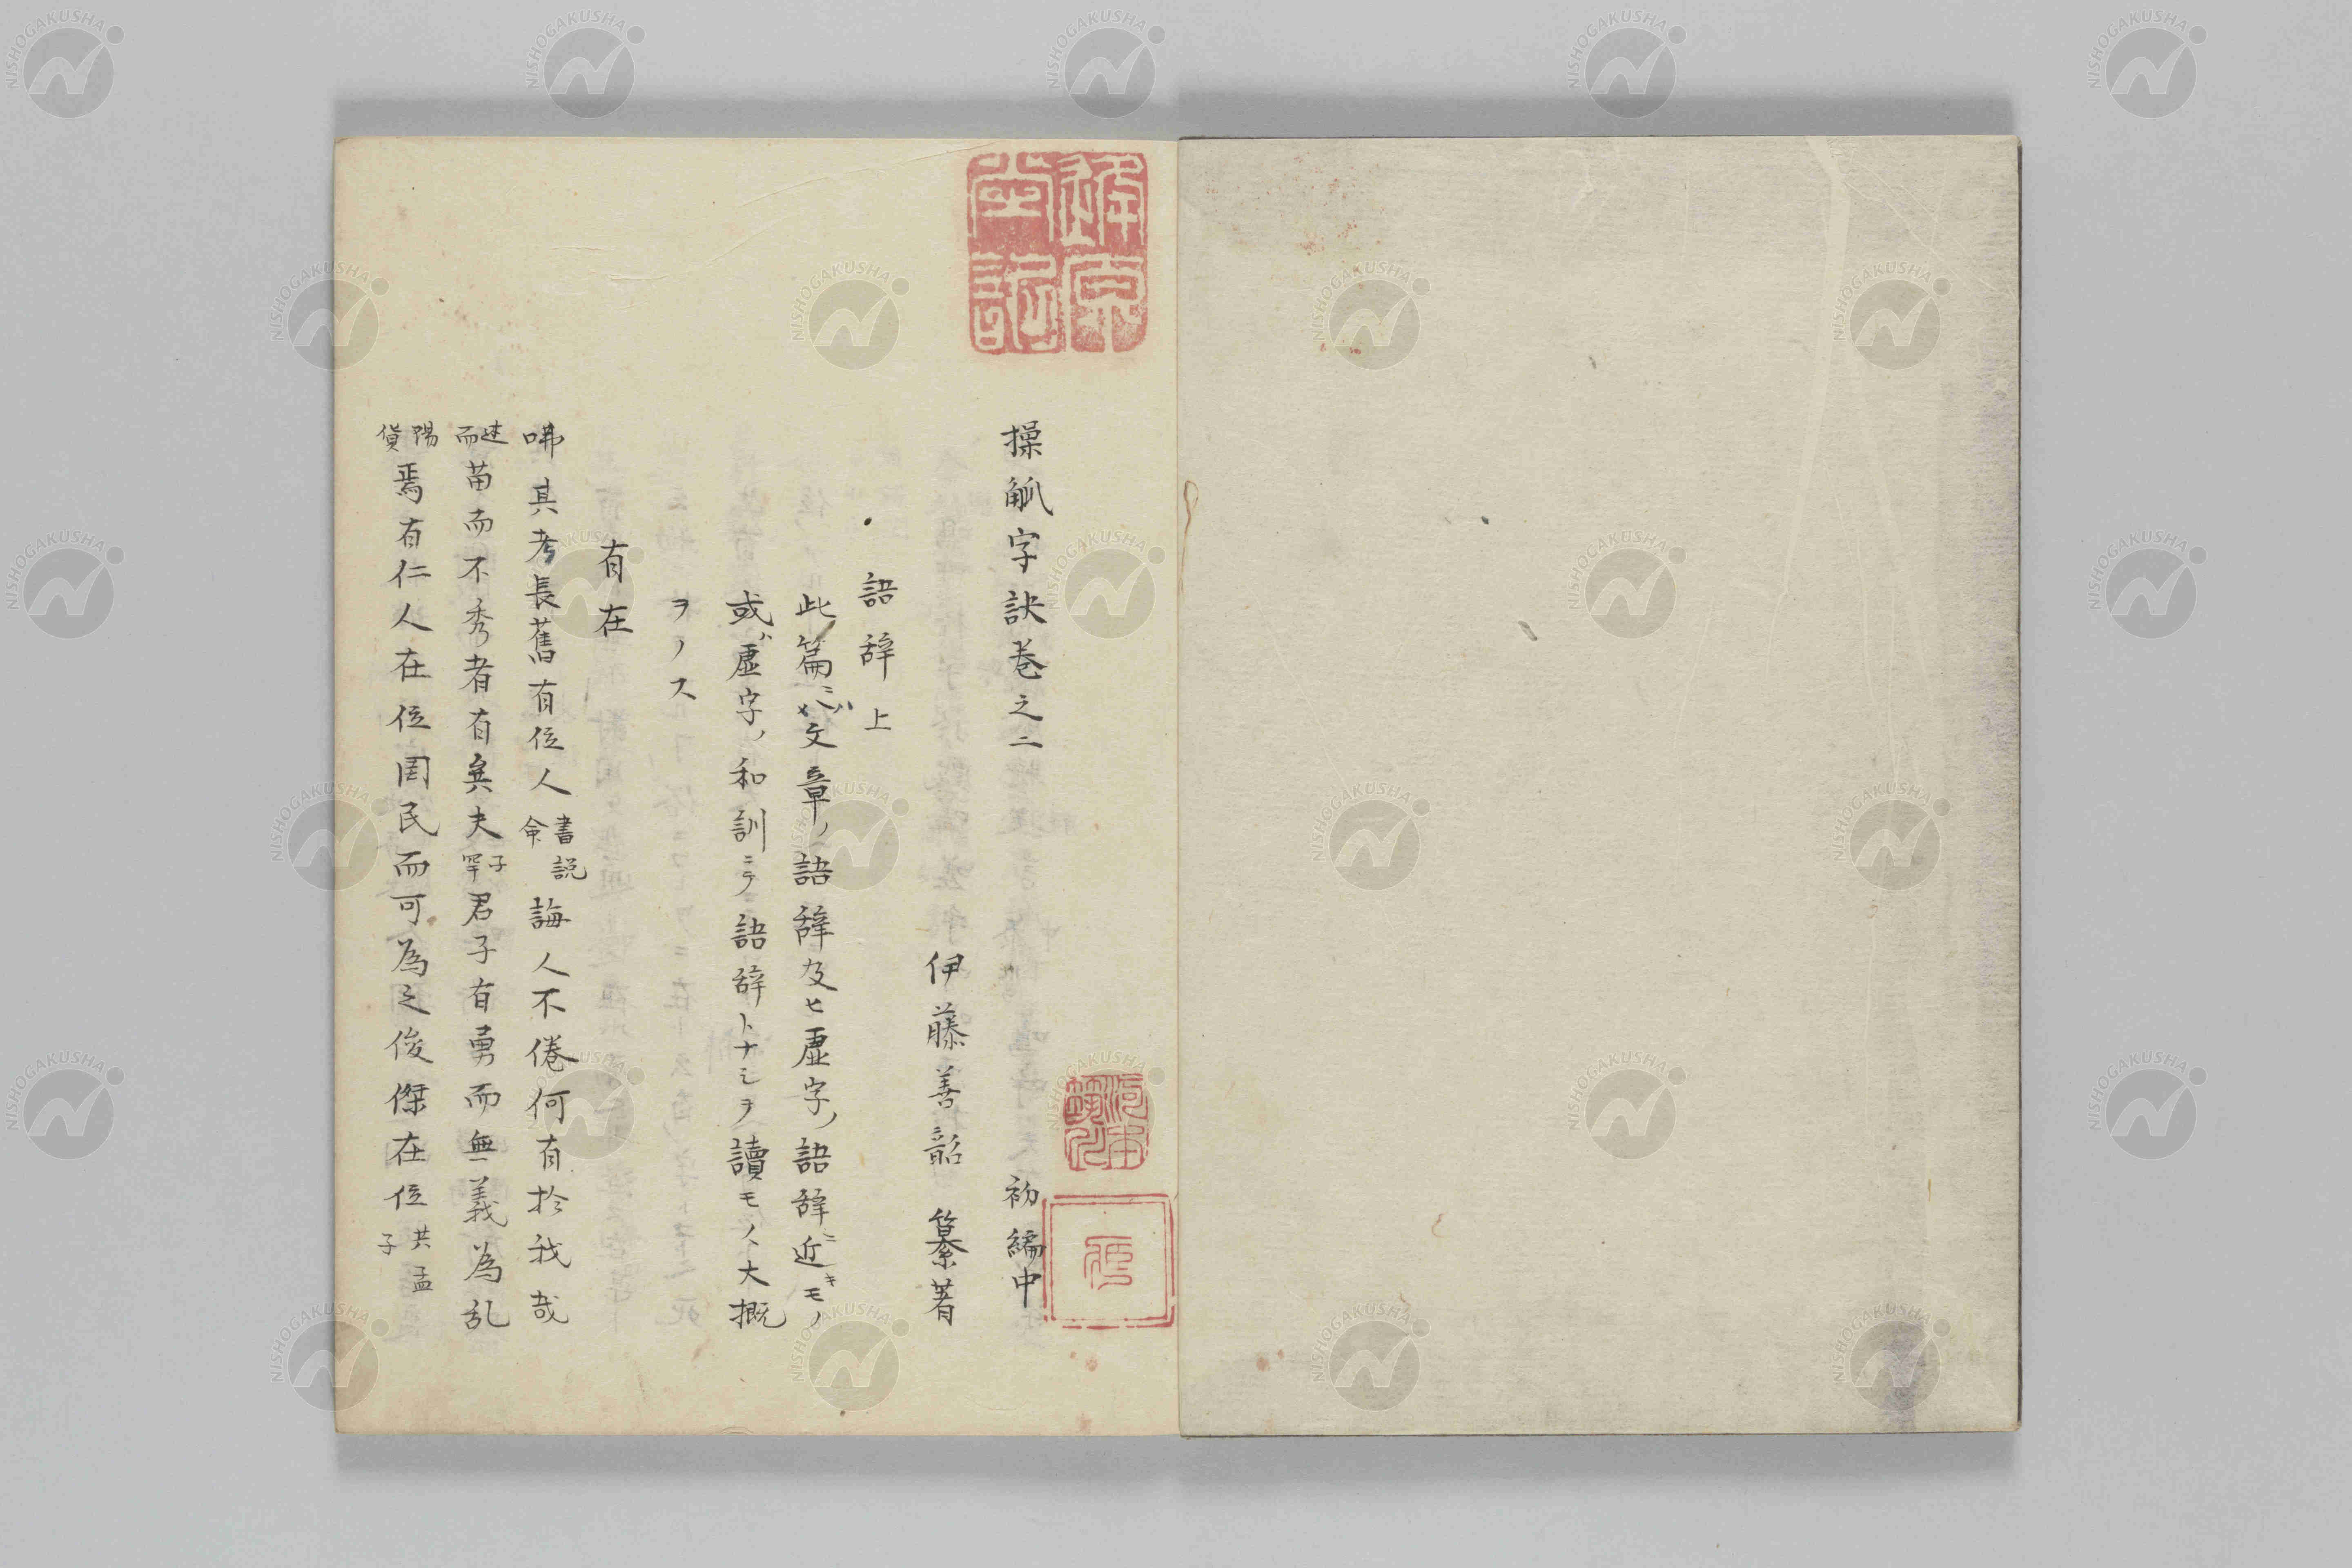 操觚字訣巻之二　初編中
伊藤善韶　纂著
語辞上
此篇ニハ文章ノ語辞及ヒ虚字ノ語辞ニ近キモノ
或ハ虚字ノ和訓ニテ語辞トナシヲ讀モノヽ大概
ヲノス
有在
咈其考長舊有位人書説命誨人不倦何有於我哉
述而苗而不秀者有矣夫子罕君子有勇而無義為乱
陽貨焉有仁人在位罔民而可為之俊傑在位共孟子
NISHOGAKUSHA